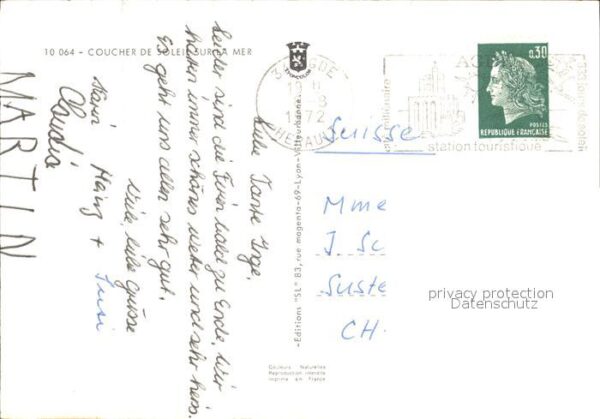 10 064 - COUCHER DE SOLEIL SUR LA MER
Liebe Tante Inge,
Leider sind die Ferien bald zu Ende. Wir
hatten immer schönes Wetter und sehr heiss.
Es geht uns allen sehr gut.
Viele, liebe Grüsse
Heinz + Susi
Claudia
MARTIN
-Editions "SL" 83, rue magenta-69-Lyon-Villeurbanne-
Couleurs Naturelles
Reproduction interdite
Imprimé en France
34 AGDE
1972
HERAULT
AGDE
station touristique
0,30
POSTES
REPUBLIQUE FRANÇAISE
Suisse
Mme
J. Sc
Suste
CH
privacy protection
Datenschutz